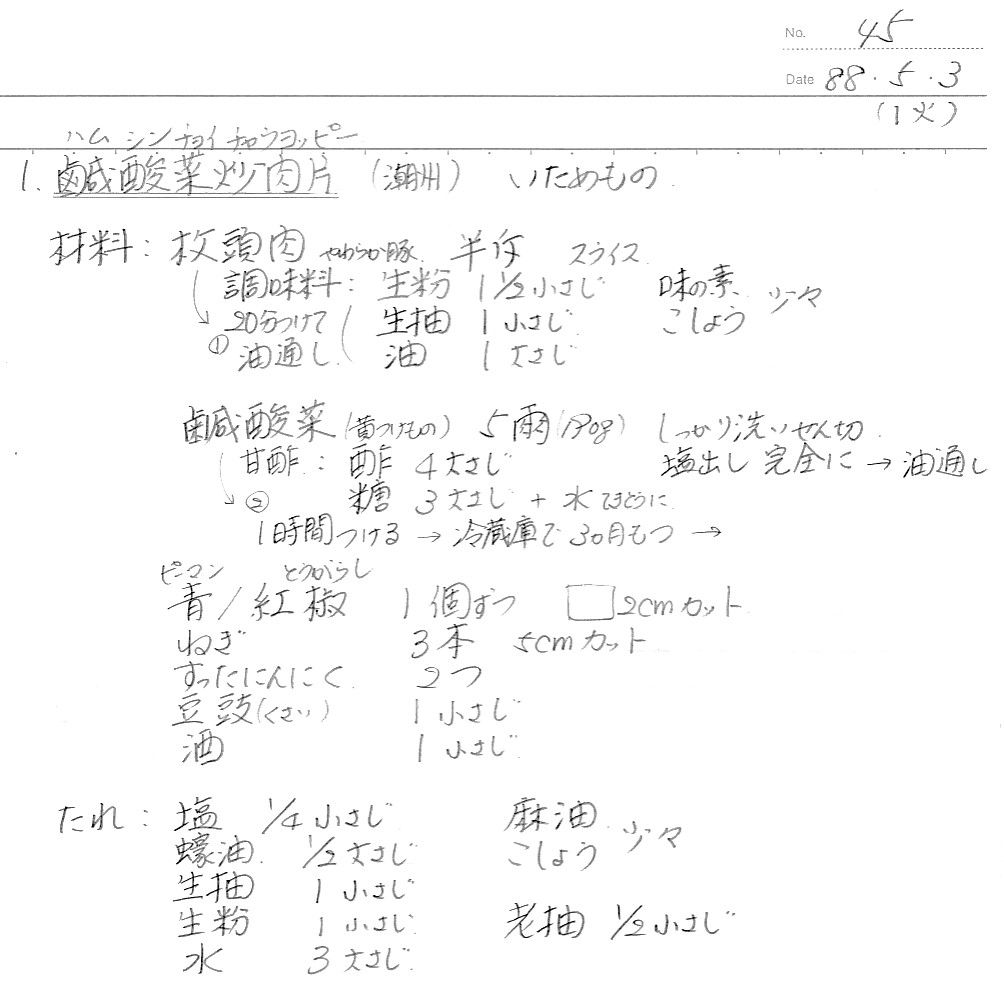 No. 45
Date 88.5.3
(1火)
ハム シン チョイ チャウ ヨッピー
1. 鹹酸菜炒肉片 (潮州) いためもの
材料: 枚頭肉 やわらか豚 半斤 スライス
調味料: 生粉 1 1/2 小さじ 味の素 少々
20分つけて 生抽 1 小さじ こしょう
① 油通し 油 1 大さじ
鹹酸菜 (黄つけもの) 5両 (190g) しっかり洗いせん切
甘酢: 酢 4 大さじ 塩出し 完全に → 油通し
② 糖 3 大さじ + 水 てきとうに
1時間つける → 冷蔵庫で 30月もつ →
ピーマン とうがらし
青/紅椒 1 個ずつ 2cm カット
ねぎ 3 本 5cm カット
すったにんにく 2つ
豆豉 (くさい) 1 小さじ
酒 1 小さじ
たれ: 塩 1/4 小さじ 麻油 少々
蠔油 1/2 大さじ こしょう
生抽 1 小さじ
生粉 1 小さじ 老抽 1/2 小さじ
水 3 大さじ